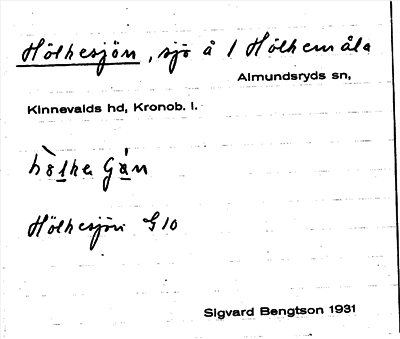 Hölkesjön, sjö å 1 Hölkemåla
Almundsryds sn,
Kinnevalds hd, Kronob. l.
hòlke Gán
Hölkesjön G10
Sigvard Bengtson 1931